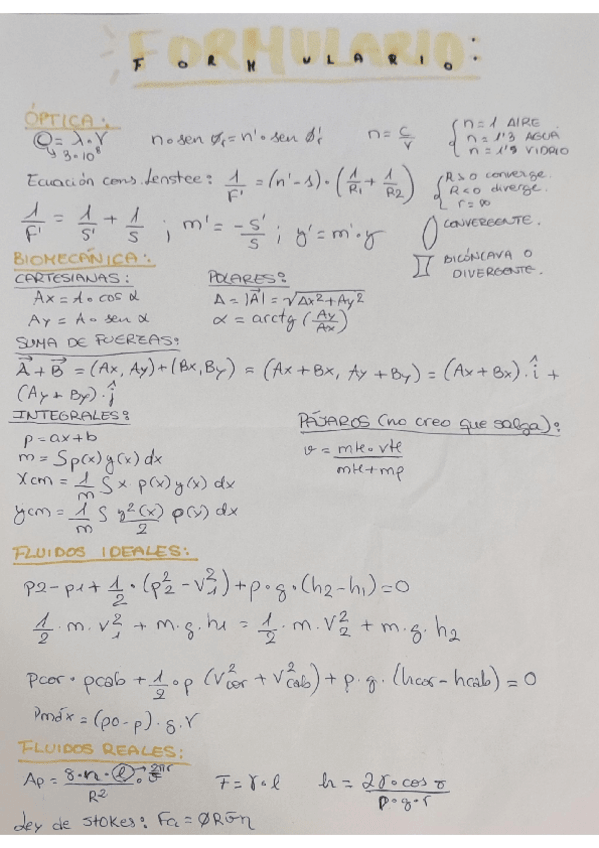 FORMULARIO:
ÓPTICA:
C = λ · V
↳ 3·10⁸
n · sen θi = n' · sen θ'i
n = C/V
n = 1 AIRE
n = 1'3 AGUA
n = 1'5 VIDRIO
Ecuación cons. lenstee: 1/F' = (n' - 1) · (1/R1 + 1/R2)
R>0 converge.
R<0 diverge.
r = ∞
1/F' = 1/S' + 1/S ; m' = -S'/S ; y' = m' · y
CONVERGENTE.
BICÓNCAVA O
DIVERGENTE.
BIOMECÁNICA:
CARTESIANAS:
Ax = A · cos α
Ay = A · sen α
POLARES:
A = |A⃗| = √Ax² + Ay²
α = arctg (Ay/Ax)
SUMA DE FUERZAS:
A⃗ + B⃗ = (Ax, Ay) + (Bx, By) = (Ax + Bx, Ay + By) = (Ax + Bx) · î +
(Ay + By) · ĵ
INTEGRALES:
p = ax + b
m = ∫ p(x) y(x) dx
Xcm = 1/m ∫ x p(x) y(x) dx
ycm = 1/m ∫ y²(x)/2 p(x) dx
PÁJAROS (no creo que salga):
v = mte · vte / mte + mp
FLUIDOS IDEALES:
p2 - p1 + 1/2 · (p²₂ - v²₁) + p · g · (h2 - h1) = 0
1/2 · m · v²₁ + m · g · h1 = 1/2 · m · V²₂ + m · g · h2
Pcor · pcab + 1/2 · p (V²cor + V²cab) + p · g · (hcor - hcab) = 0
Pmáx = (po - p) · g · r
FLUIDOS REALES:
Ap = 8 · n · l / R²
2πr
F = γ · l
h = 2γ · cos σ / p · g · r
Ley de Stokes: Fa = ØRv̄η